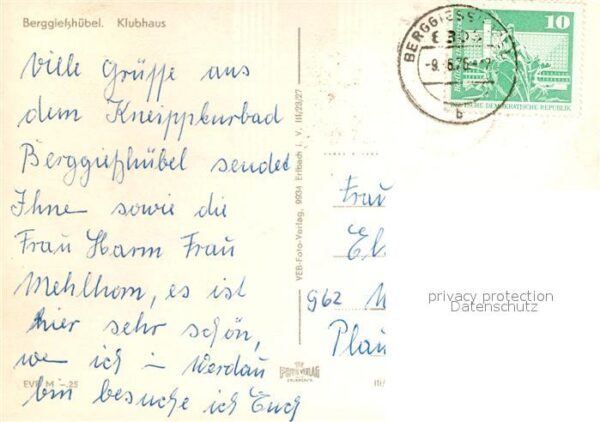 Berggießhübel. Klubhaus
Viele Grüße aus
dem Kneippkurbad
Berggießhübel sendet
Ihne sowie die
Frau Harm Frau
Mehlhorn, es ist
hier sehr schön,
wen ich in Werdau
bin besuche ich Euch
EVP M -.25
VEB-Foto-Verlag, 9934 Erlbach i. V. III/23/27
FOTO-VERLAG
BERGGIESSHÜBEL
8302
-9.6.76
b
10
DEUTSCHE DEMOKRATISCHE REPUBLIK
Frau
962
Plau
privacy protection
Datenschutz